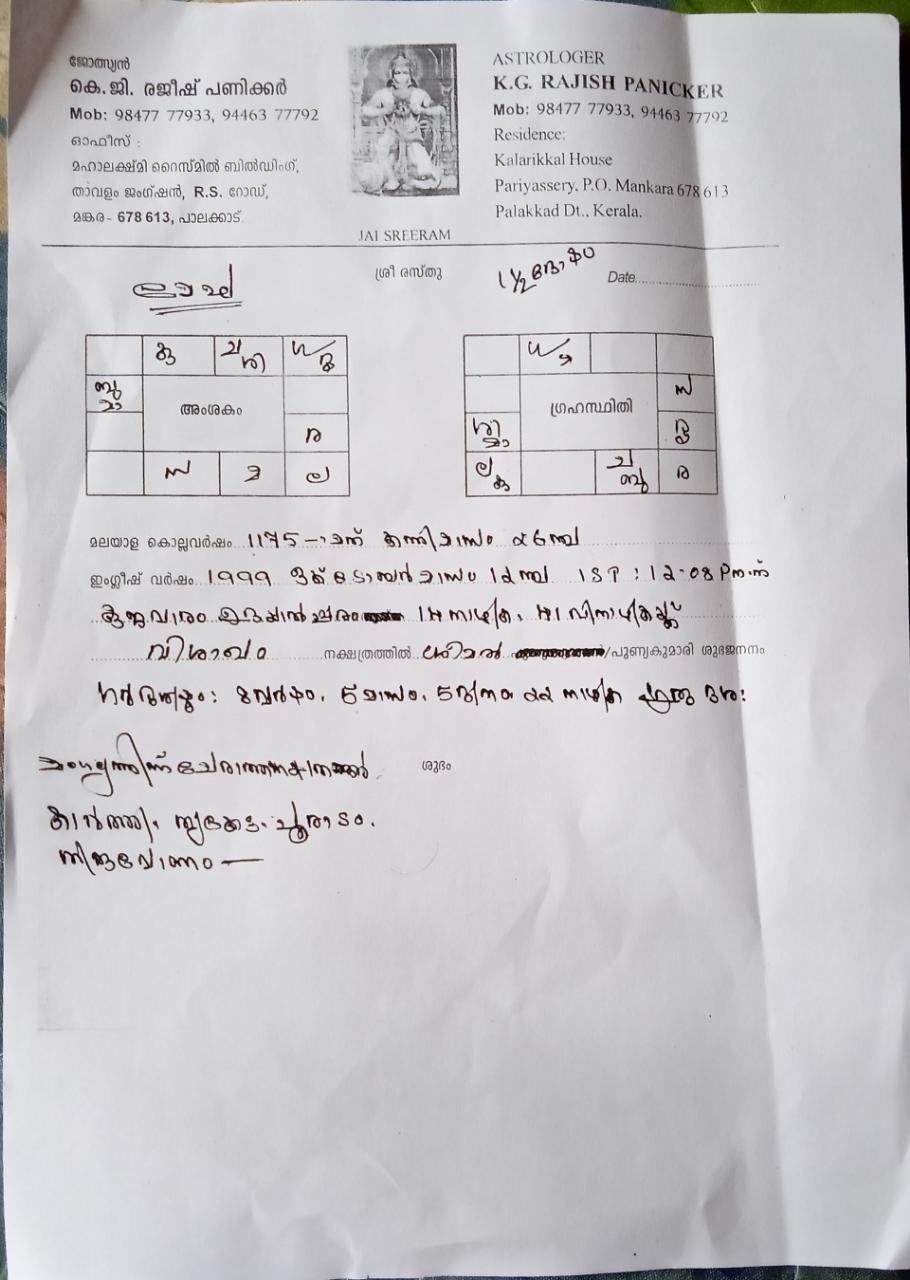 ജോത്സ്യൻ
കെ.ജി. രജീഷ് പണിക്കർ
Mob: 98477 77933, 94463 77792
ഓഫീസ് :
മഹാലക്ഷ്മി റൈസ്മിൽ ബിൽഡിംഗ്,
താവളം ജംഗ്ഷൻ, R.S. റോഡ്,
മങ്കര - 678 613, പാലക്കാട്
JAI SREERAM
ASTROLOGER
K.G. RAJISH PANICKER
Mob: 98477 77933, 94463 77792
Residence:
Kalarikkal House
Pariyassery, P.O. Mankara 678 613
Palakkad Dt., Kerala.
ശ്രീ രസ്തു
Date
കു ച ശി
ബു മാ
അംശകം
ര
സ മ ല
ഗു
സ
ഗ്രഹസ്ഥിതി
മാ
ല കു ച ബു ര
മലയാള കൊല്ലവർഷം 1175 -ാമത് കന്നിമാസം ൨൬ന്
ഇംഗ്ലീഷ് വർഷം 1999 ഒക്ടോബർ മാസം 12ന് IST : 12-08 Pm ന്
കുജവാരം ഉദയാൽപരം നാഴിക, വിനാഴികക്ക്
വിശാഖം നക്ഷത്രത്തിൽ /പുണ്യകുമാരി ശുഭജനനം
മാസം, ദിനം ൨൨ നാഴിക
ചേരാത്ത നക്ഷത്രങ്ങൾ ശുഭം
കാർത്തിക, തൃക്കേട്ട, പൂരാടം,
തിരുവോണം —